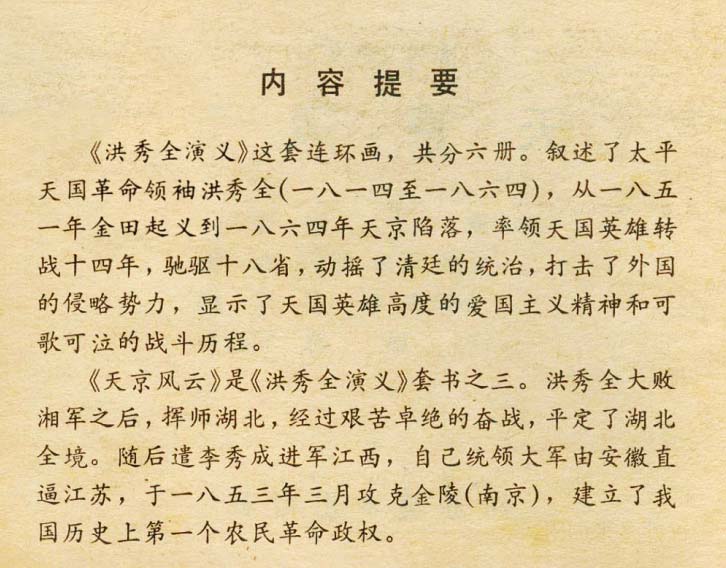 内容提要
《洪秀全演义》这套连环画，共分六册。叙述了太平
天国革命领袖洪秀全(一八一四至一八六四)，从一八五
一年金田起义到一八六四年天京陷落，率领天国英雄转
战十四年，驰驱十八省，动摇了清廷的统治，打击了外国
的侵略势力，显示了天国英雄高度的爱国主义精神和可
歌可泣的战斗历程。
《天京风云》是《洪秀全演义》套书之三。洪秀全大败
湘军之后，挥师湖北，经过艰苦卓绝的奋战，平定了湖北
全境。随后遣李秀成进军江西，自己统领大军由安徽直
逼江苏，于一八五三年三月攻克金陵(南京)，建立了我
国历史上第一个农民革命政权。